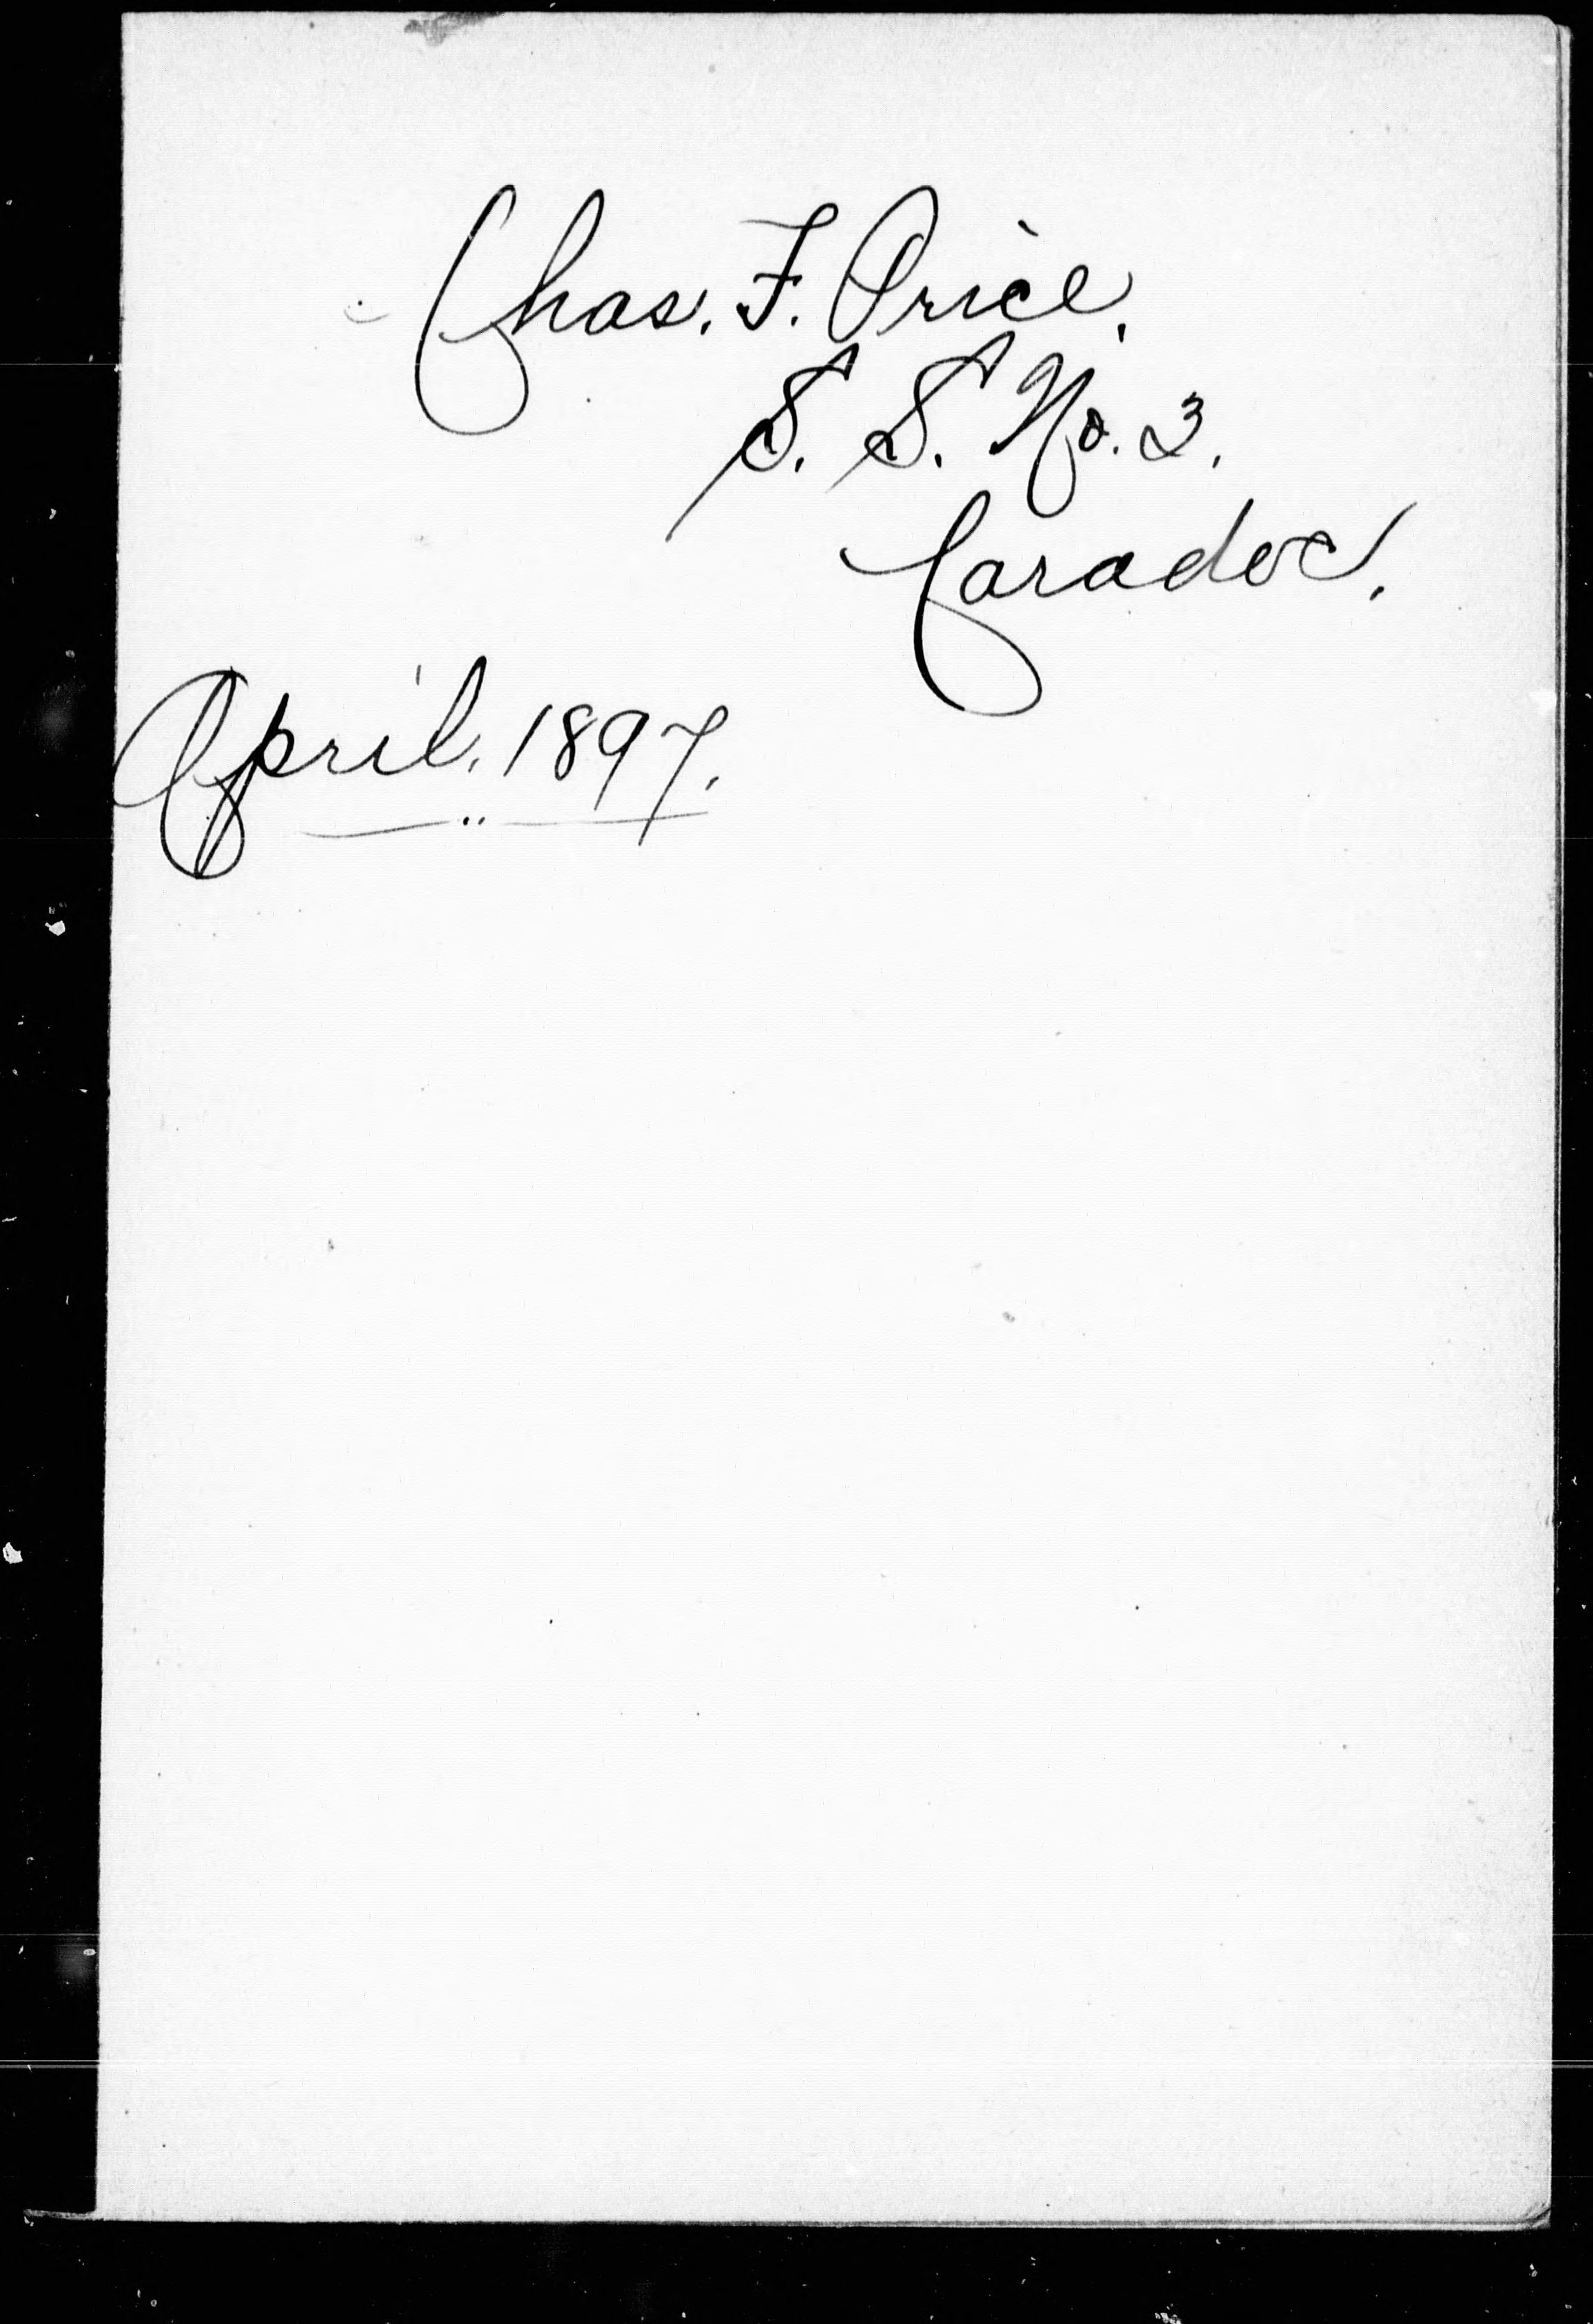 Chas. F. Price.
S. S. No. 3.
Caradoc.
April. 1897.